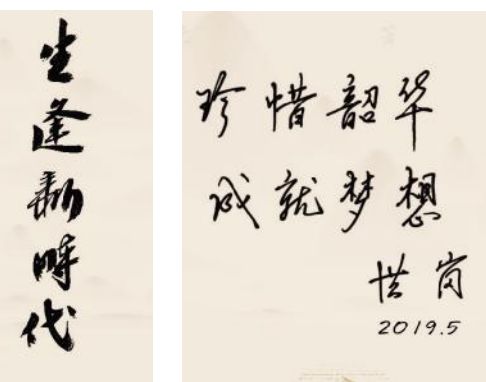 生逢新時代
珍惜韶华
成就梦想
岗
2019.5